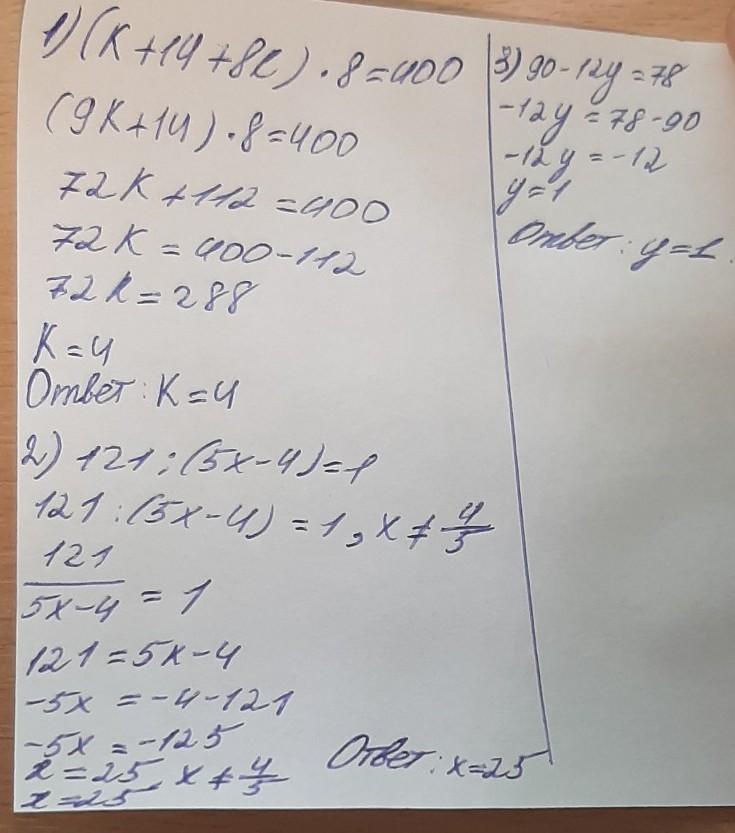 1) (к+14+8к)·8=400
(9к+14)·8=400
72к+112=400
72к=400-112
72к=288
к=4
Ответ: к=4
2) 121:(5x-4)=1
121:(5x-4)=1, x≠4/5
121/(5x-4) = 1
121=5x-4
-5x=-4-121
-5x=-125
x=25, x≠4/5
x=25
Ответ: x=25
3) 90-12y=78
-12y=78-90
-12y=-12
y=1
Ответ: y=1.